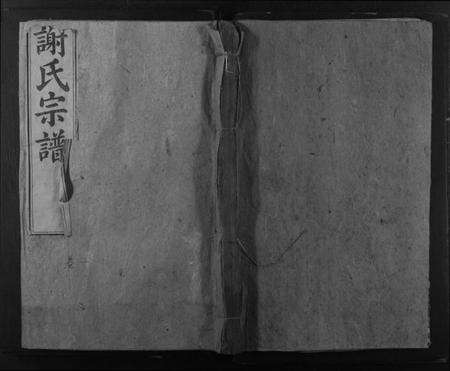 謝氏宗譜